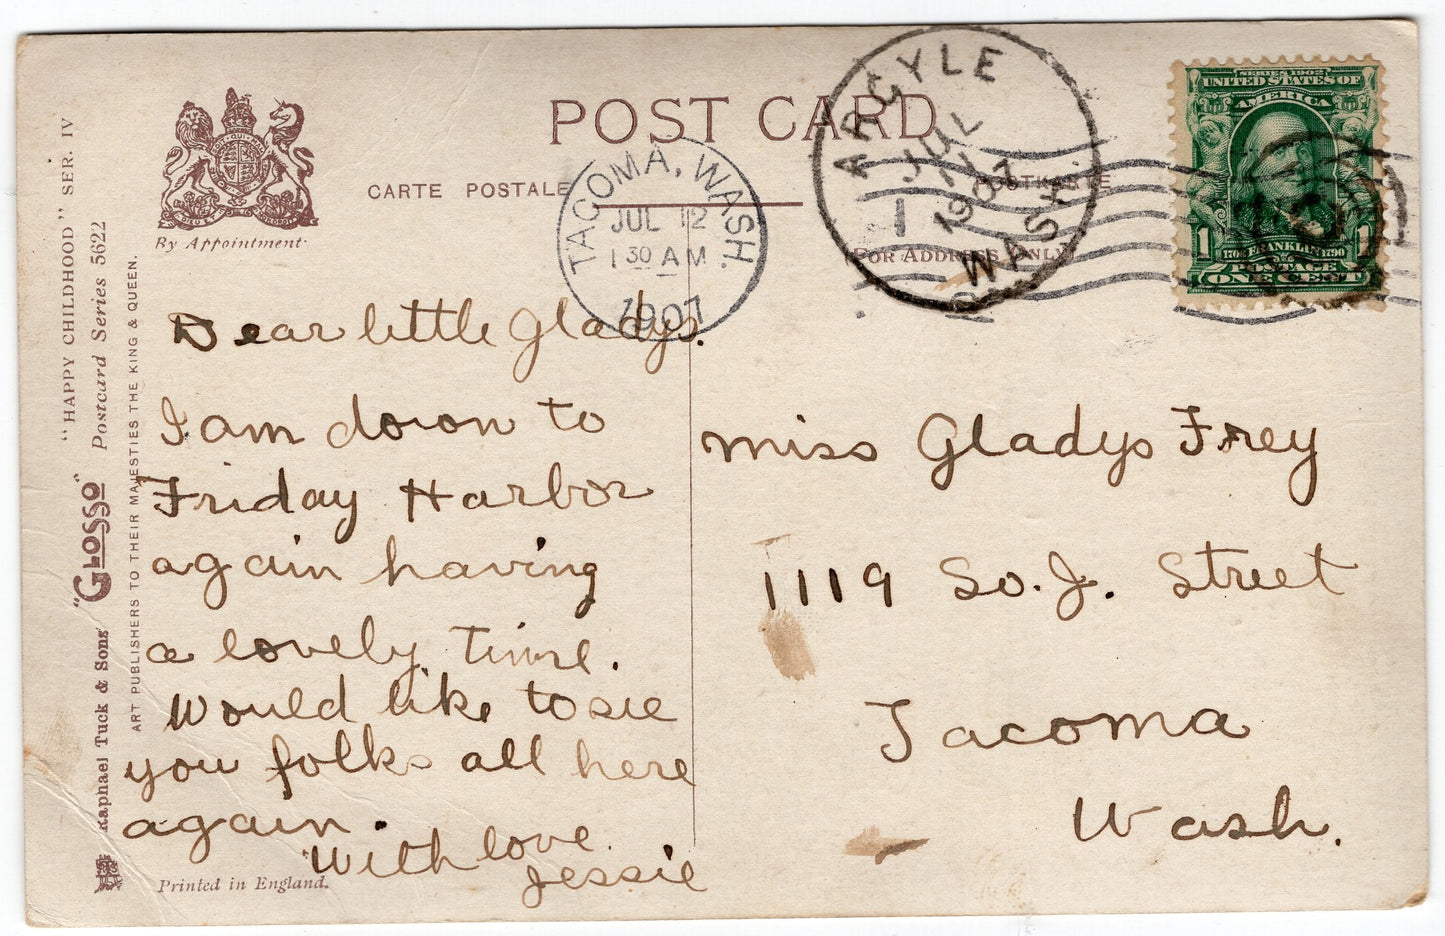 "HAPPY CHILDHOOD" SER. IV
"GLOSSO" Postcard Series 5622
Raphael Tuck & Sons'
ART PUBLISHERS TO THEIR MAJESTIES THE KING & QUEEN.
By Appointment
POST CARD
CARTE POSTALE
POSTKARTE
(FOR ADDRESS ONLY)
TACOMA, WASH.
JUL 12
1 30 AM
1907
ARGYLE
JUL
11
1907
WASH.
SERIES 1902
UNITED STATES OF
AMERICA
1 1
FRANKLIN 1790
POSTAGE
ONE CENT
Dear little Gladys.
I am down to
Friday Harbor
again having
a lovely time.
Would like to see
you folks all here
again.
With love
Jessie
Miss Gladys Frey
1119 So. J. Street
Tacoma
Wash.
Printed in England.